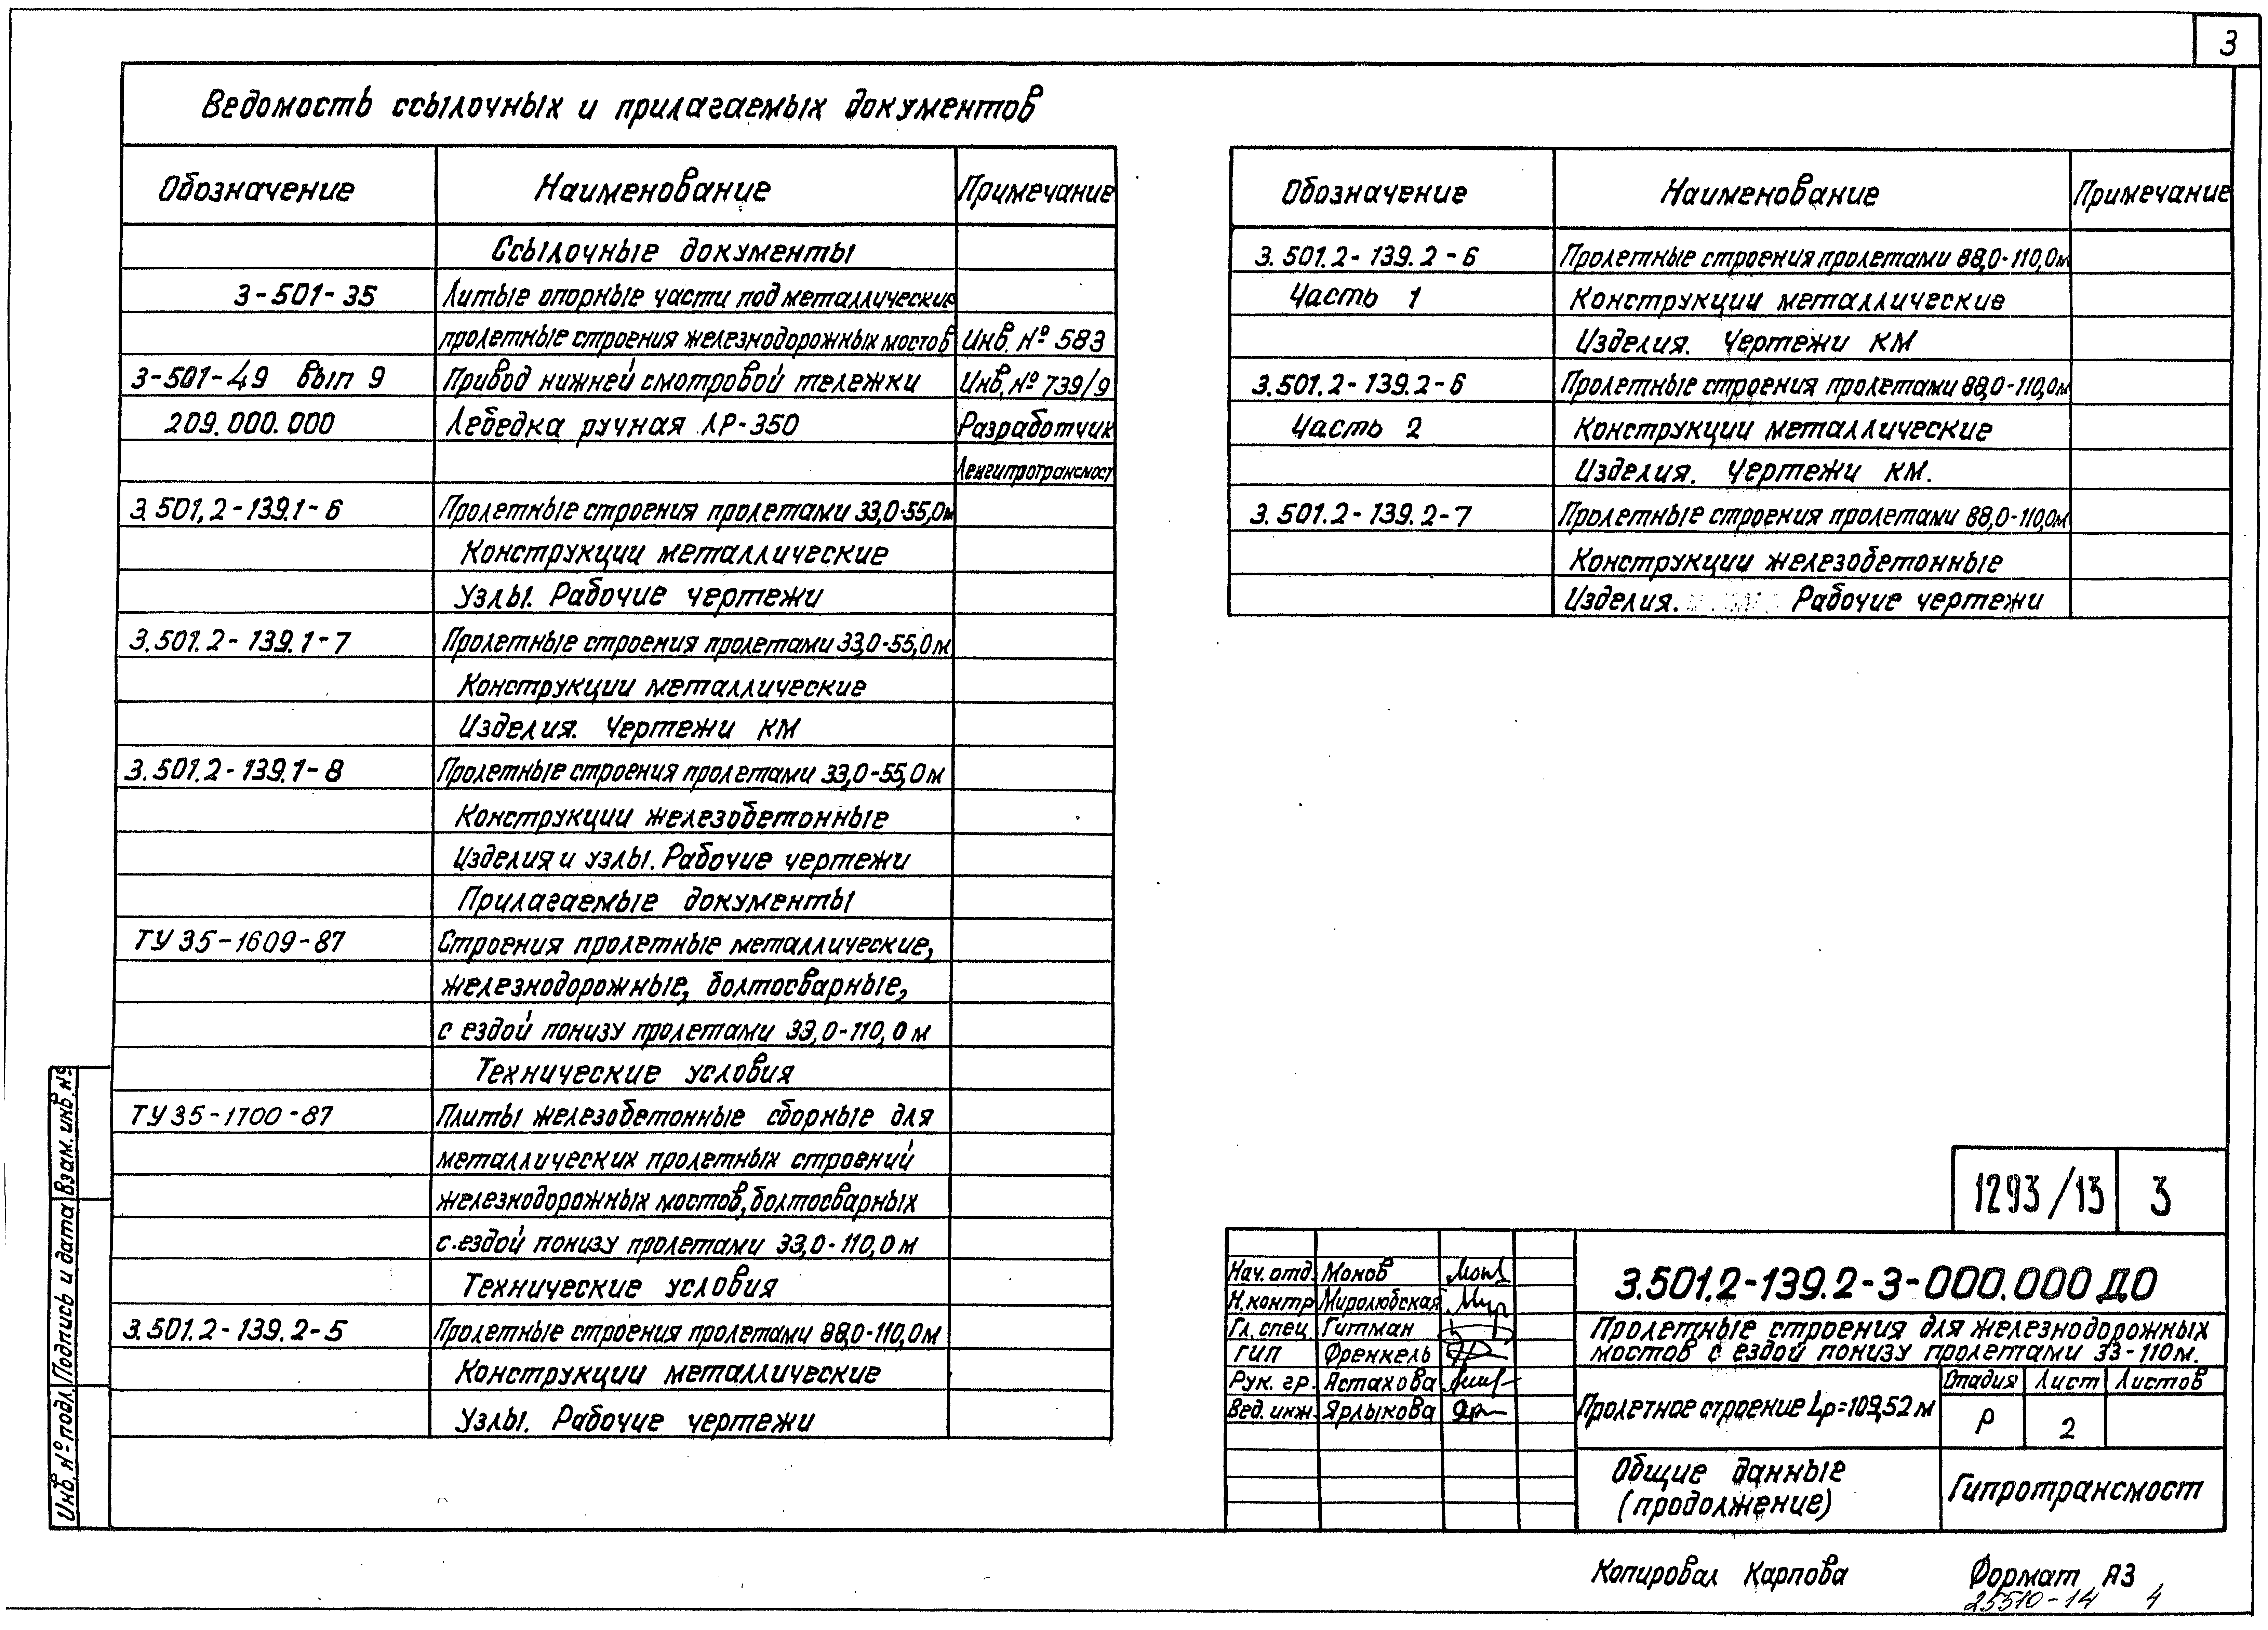 3
Ведомость ссылочных и прилагаемых документов
Обозначение Наименование Примечание
Ссылочные документы
3-501-35 Литые опорные части под металлические
пролетные строения железнодорожных мостов Инв. № 583
3-501-49 вып 9 Привод нижней смотровой тележки Инв. № 739/9
209.000.000 Лебедка ручная ЛР-350 Разработчик
Ленгипротрансмост
3.501.2-139.1-6 Пролетные строения пролетами 33,0-55,0м
Конструкции металлические
Узлы. Рабочие чертежи
3.501.2-139.1-7 Пролетные строения пролетами 33,0-55,0м
Конструкции металлические
Изделия. Чертежи КМ
3.501.2-139.1-8 Пролетные строения пролетами 33,0-55,0м
Конструкции железобетонные
Изделия и узлы. Рабочие чертежи
Прилагаемые документы
ТУ 35-1609-87 Строения пролетные металлические,
железнодорожные, болтосварные,
с ездой понизу пролетами 33,0-110,0м
Технические условия
ТУ 35-1700-87 Плиты железобетонные сборные для
металлических пролетных строений
железнодорожных мостов, болтосварных
с ездой понизу пролетами 33,0-110,0м
Технические условия
3.501.2-139.2-5 Пролетные строения пролетами 88,0-110,0м
Конструкции металлические
Узлы. Рабочие чертежи
Обозначение Наименование Примечание
3.501.2-139.2-6 Пролетные строения пролетами 88,0-110,0м
Часть 1 Конструкции металлические
Изделия. Чертежи КМ
3.501.2-139.2-6 Пролетные строения пролетами 88,0-110,0м
Часть 2 Конструкции металлические
Изделия. Чертежи КМ.
3.501.2-139.2-7 Пролетные строения пролетами 88,0-110,0м
Конструкции железобетонные
Изделия. Рабочие чертежи
1293/13 3
Нач. отд. Монов
Н.контр Миролюбская
Гл. спец. Гитман
ГИП Френкель
Рук. гр. Астахова
Вед. инж. Ярлыкова
3.501.2-139.2-3-000.000 ДО
Пролетные строения для железнодорожных
мостов с ездой понизу пролетами 33-110м.
Пролетное строение Lp=109,52м
Стадия Лист Листов
Р 2
Общие данные
(продолжение)
Гипротрансмост
Взам. инв. №
Подпись и дата
Инв. № подл.
Копировал Карпова Формат А3
25510-14 4